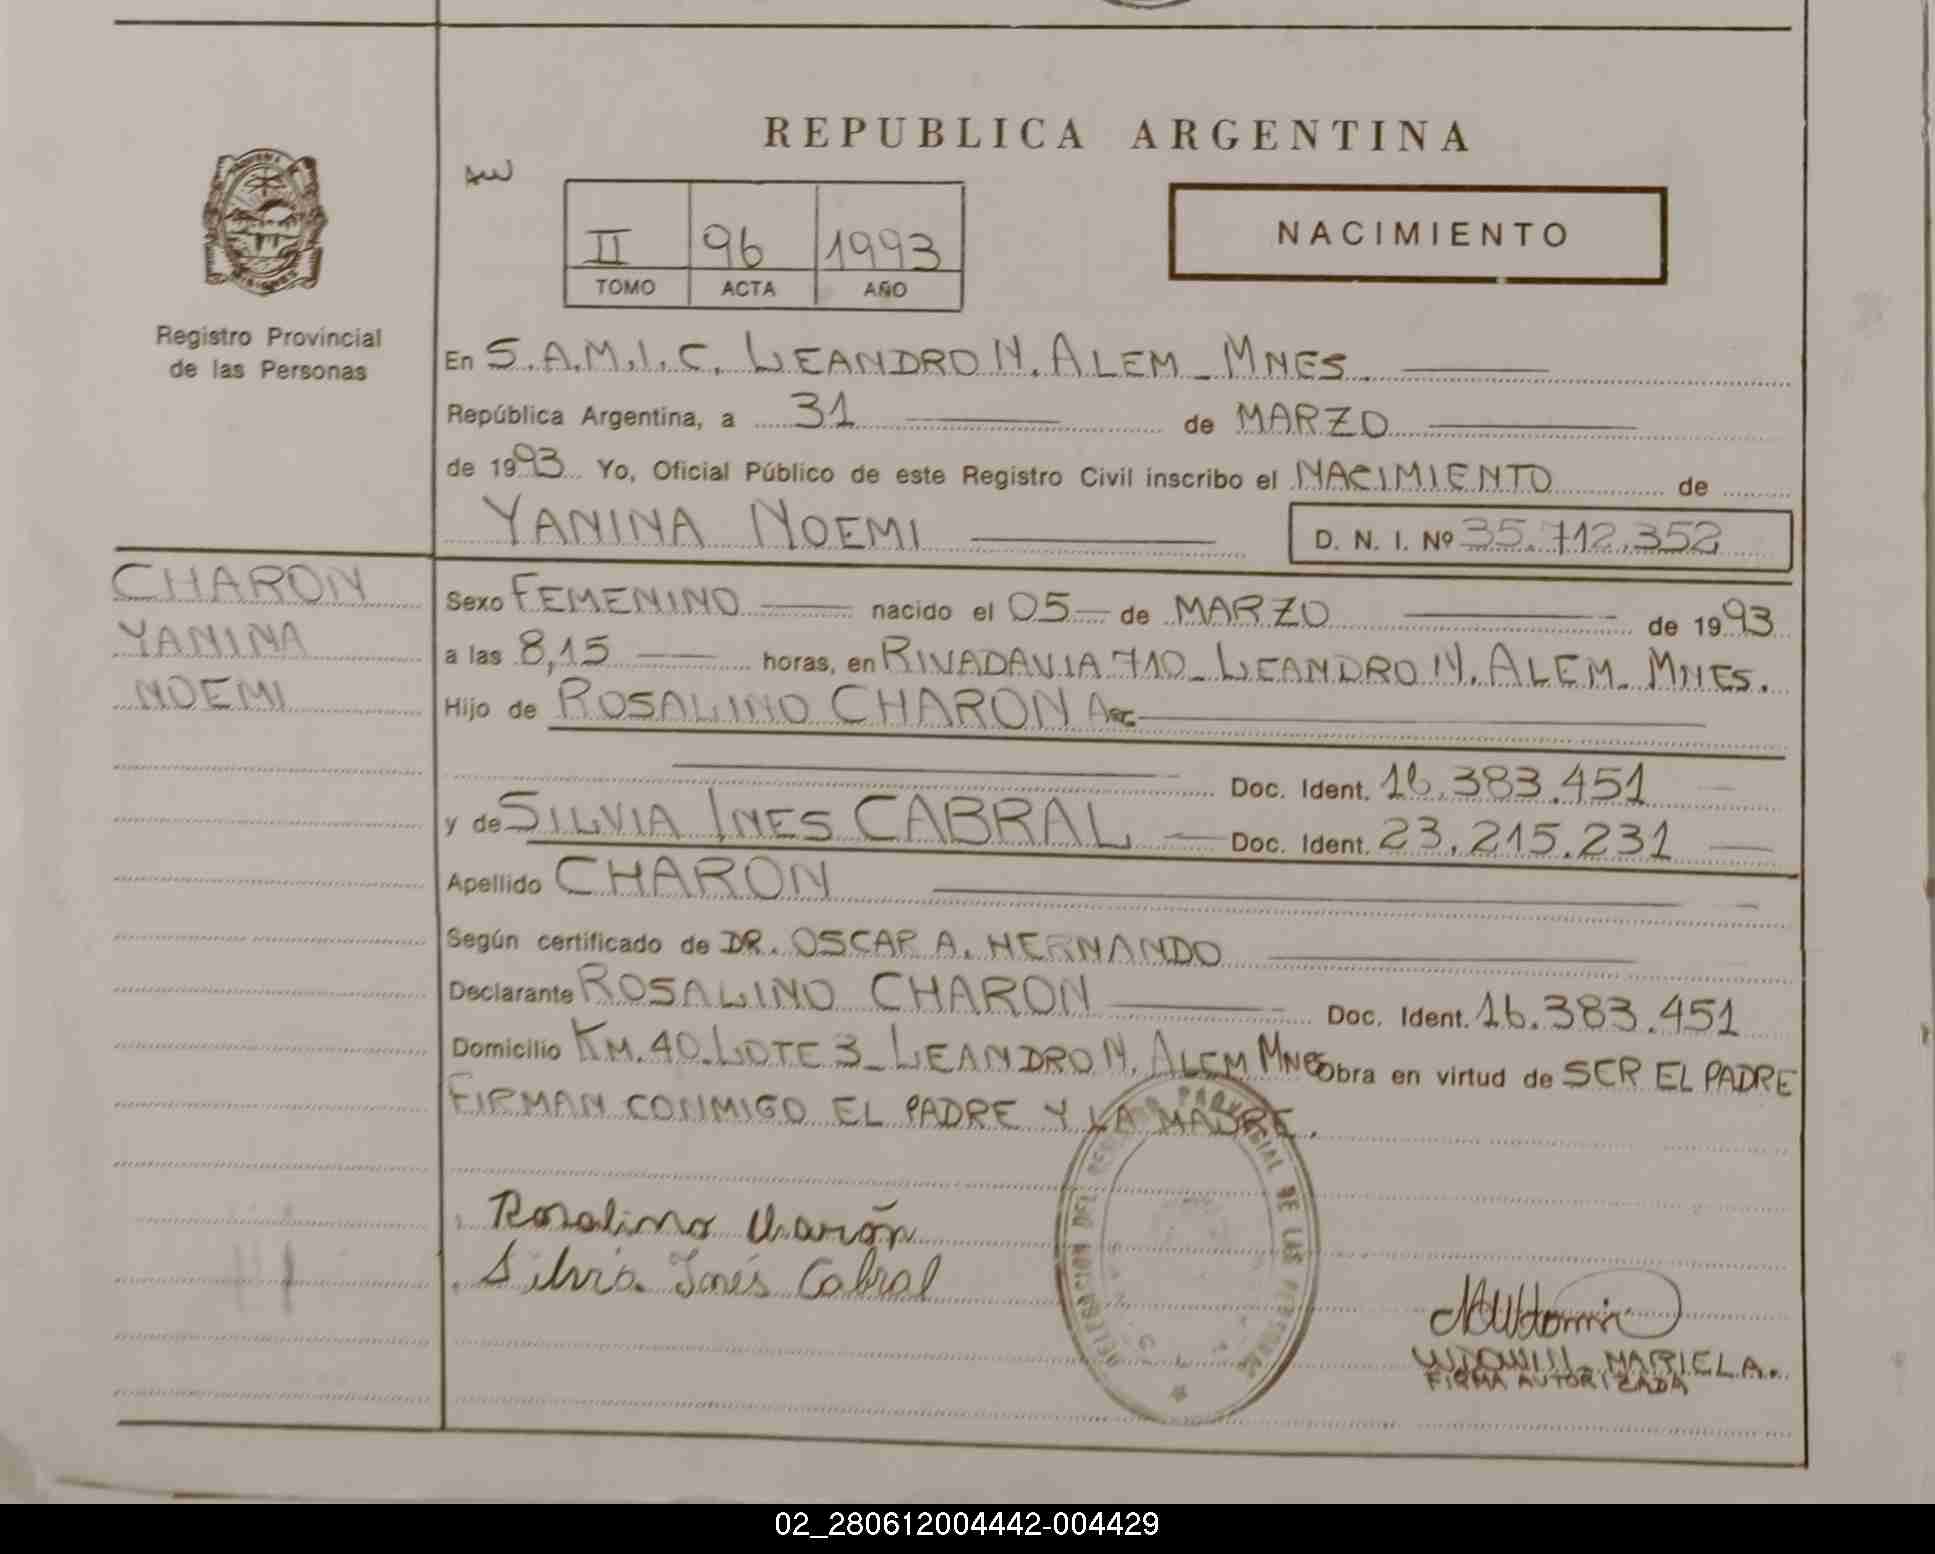 REPUBLICA ARGENTINA
NACIMIENTO
II 96 1993
TOMO ACTA AÑO
Registro Provincial
de las Personas
En S.A.M.I.C. LEANDRO N. ALEM - MNES.
República Argentina, a 31 de MARZO
de 1993 Yo, Oficial Público de este Registro Civil inscribo el NACIMIENTO de
YANINA NOEMI D. N. I. Nº 35.712.352
CHARON
YANINA
NOEMI
Sexo FEMENINO nacido el 05 de MARZO de 1993
a las 8,15 horas, en RIVADAVIA 710 - LEANDRO N. ALEM - MNES.
Hijo de ROSALINO CHARON
Doc. Ident. 16.383.451
y de SILVIA INES CABRAL Doc. Ident. 23.215.231
Apellido CHARON
Según certificado de DR. OSCAR A. HERNANDO
Declarante ROSALINO CHARON Doc. Ident. 16.383.451
Domicilio KM. 40 - LOTE 3 - LEANDRO N. ALEM MNES Obra en virtud de SER EL PADRE
FIRMAN CONMIGO EL PADRE Y LA MADRE.
Rosalino Charón
Silvia Inés Cabral
DELEGACION DEL DE LAS
MARIEL A.
FIRMA AUTORIZADA
02_280612004442-004429